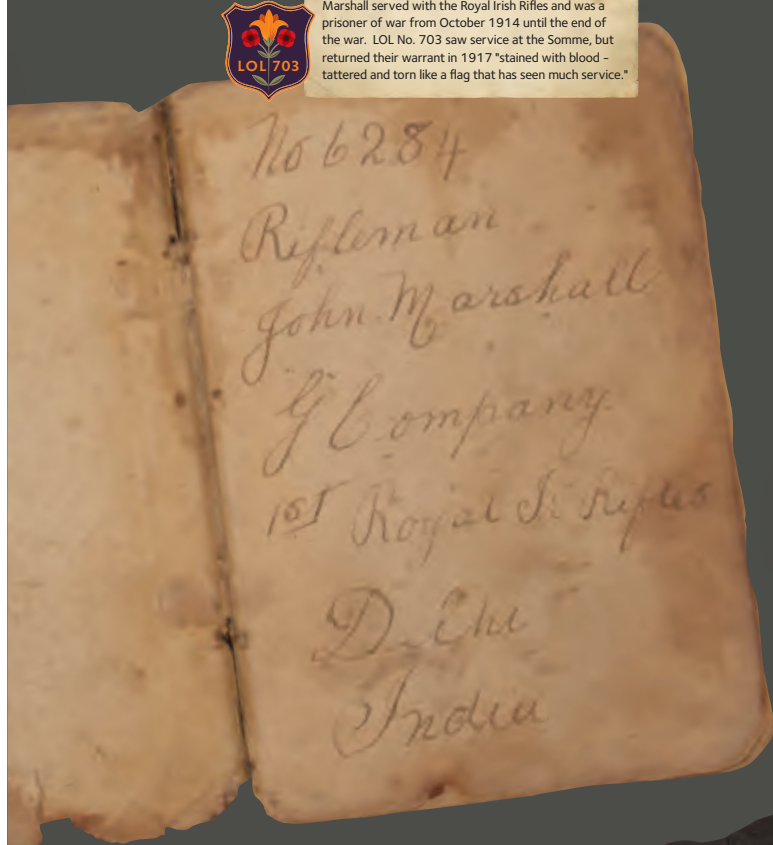 Marshall served with the Royal Irish Rifles and was a
prisoner of war from October 1914 until the end of
the war. LOL No. 703 saw service at the Somme, but
returned their warrant in 1917 "stained with blood –
tattered and torn like a flag that has seen much service."
LOL 703
No 6284
Rifleman
John Marshall
G Company
1st Royal Ir Rifles
Delhi
India